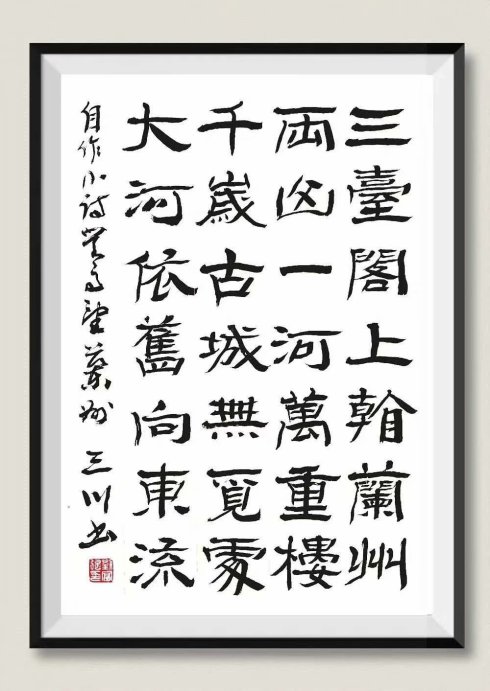 三臺閣上翰蘭州
両山一河萬重樓
千歲古城無覓處
大河依舊向東流
自作小詩登高望蘭州 三川书